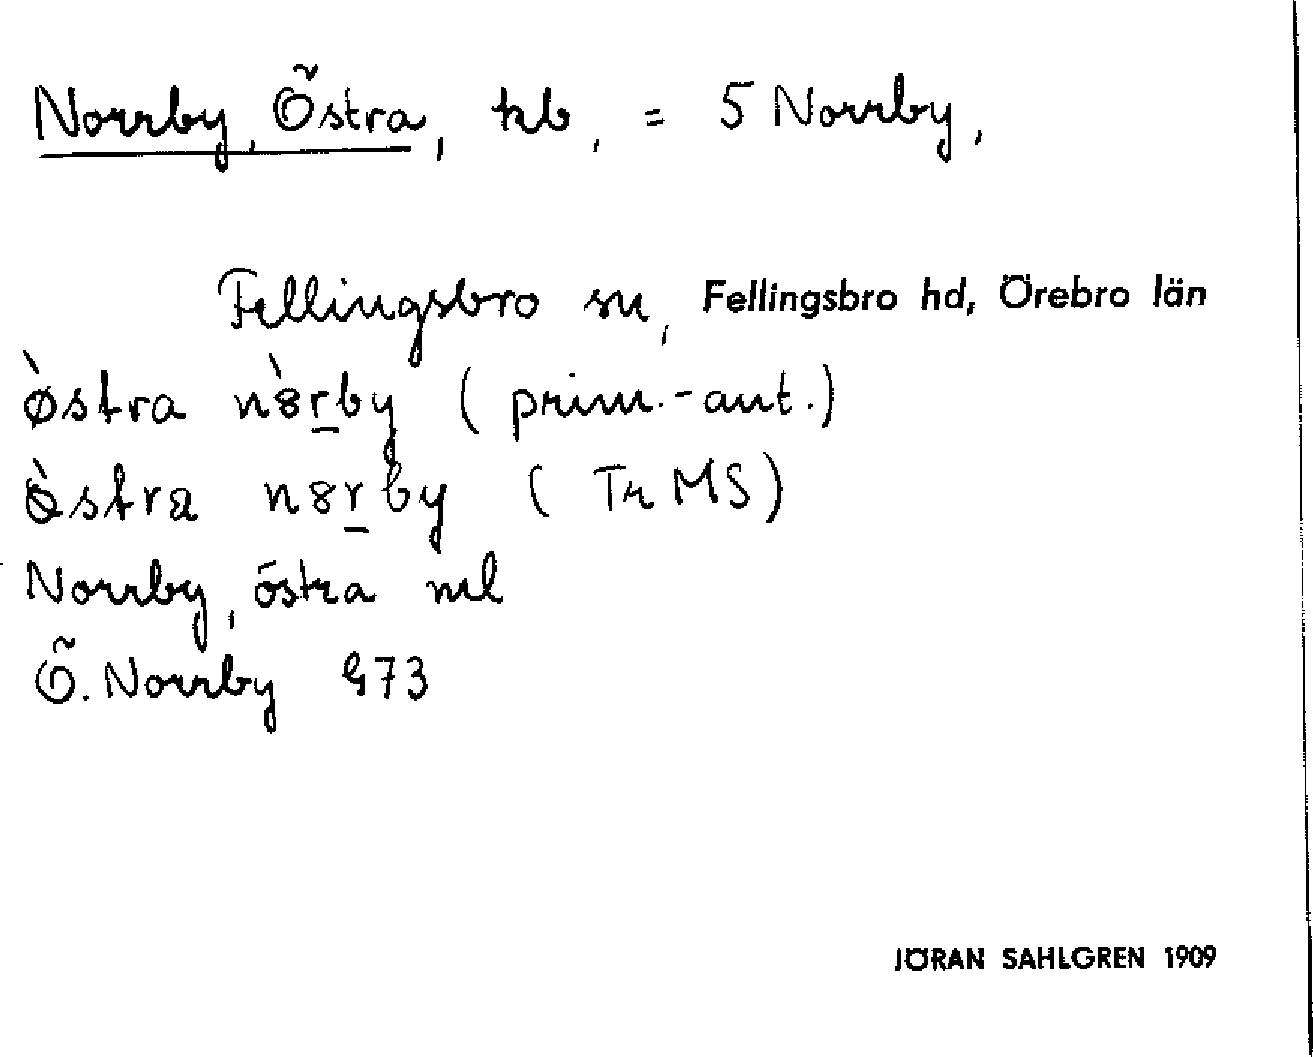 Norrby, Östra, kb, = 5 Norrby,
Fellingsbro sn, Fellingsbro hd, Örebro län
ø̀stra n8̀r̲by (prim.-ant.)
ø̀stra n8r̲by (Tr MS)
Norrby, östra ml
Ö. Norrby 473
JÖRAN SAHLGREN 1909